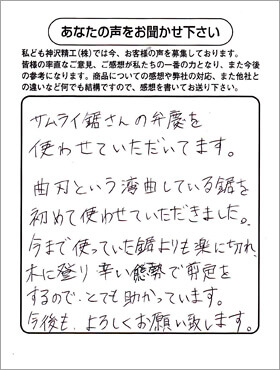 あなたの声をお聞かせ下さい
私ども神沢精工(株)では今、お客様の声を募集しております。
皆様の率直なご意見、ご感想が私たちの一番の力となり、また今後
の参考になります。商品についての感想や弊社の対応、また他社と
の違いなど何でも結構ですので、感想を書いてお送り下さい。
サムライ鋸さんの弁慶を
使わせていただいてます。
曲刃という湾曲している鋸を
初めて使わせていただきました。
今まで使っていた鋸よりも楽に切れ、
木に登り辛い態勢で剪定を
するので、とても助かっています。
今後も、よろしくお願い致します。